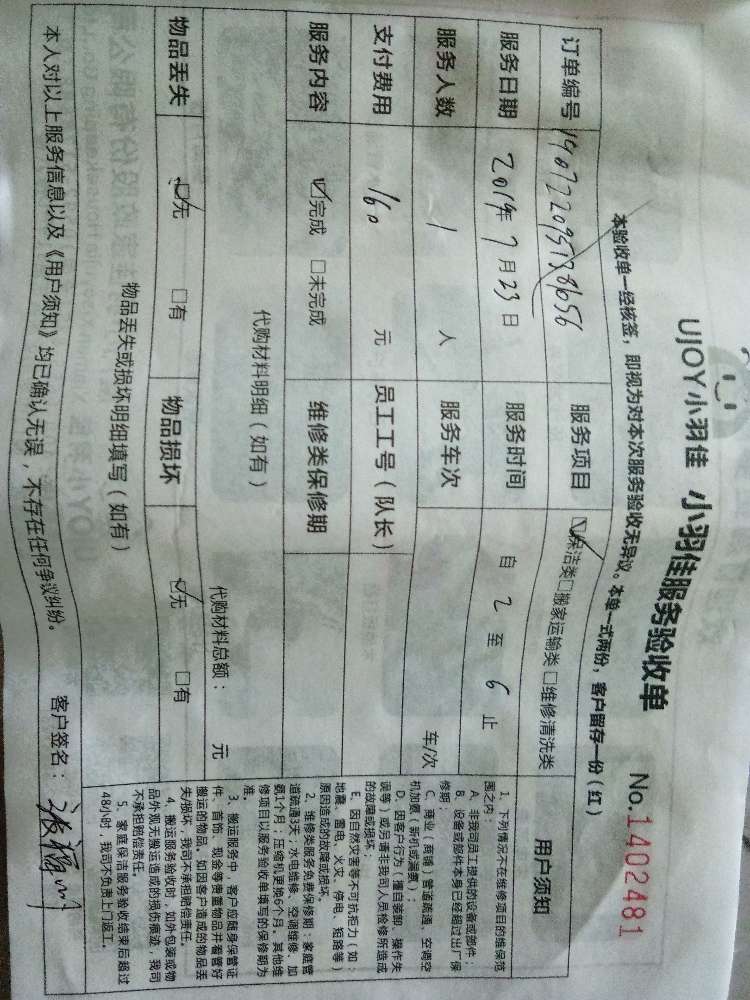 UJOY小羽佳 小羽佳服务验收单 No.1402481
本验收单一经核签，即视为对本次服务验收无异议。本单一式两份，客户留存一份（红）
订单编号 服务项目 ☑保洁类□搬家运输类 □维修清洗类
服务日期 2019年7月23日 服务时间 自 2 至 6 止
服务人数 1 人 服务车次 车/次
支付费用 160 元 员工工号（队长）
服务内容 ☑完成 □未完成 维修类保修期
代购材料明细（如有）
代购材料总额： 元
物品丢失 ☑无 □有 物品损坏 ☑无 □有
物品丢失或损坏明细填写（如有）
本人对以上服务信息以及《用户须知》均已确认无误，不存在任何争议纠纷。 客户签名：
用户须知
1、下列情况不在维修项目的维保范
围之内：
A、非我司员工提供的设备或部件；
B、设备或部件本身已经超过出厂保
修期；
C、商业（商铺）管道疏通、空调空
机加氟（新机或满氟）；
D、因客户行为（擅自装卸、操作失
误等）或另请非我司人员检修所造成
的故障或损坏；
E、因自然灾害等不可抗拒力（如：
地震、雷电、火灾、停电、短路等）
原因造成的故障或损坏。
2、维修类服务免费保修期：家庭管
道疏通3天；水电维修、空调维修、加
氨1个月；压缩机更换6个月。其他维
修项目以服务验收单填写的保修期为
准。
3、搬运服务中，客户应随身保管证
件、首饰、现金等贵重物品并看管好
搬运的物品，如因客户造成的物品丢
失/损坏，我司不承担赔偿责任。
4、搬运服务验收时，如外包装或物
品外观无搬运造成的损伤痕迹，我司
不承担赔偿责任。
5、家庭保洁服务验收结束后超过
48小时，我司不负责上门返工。